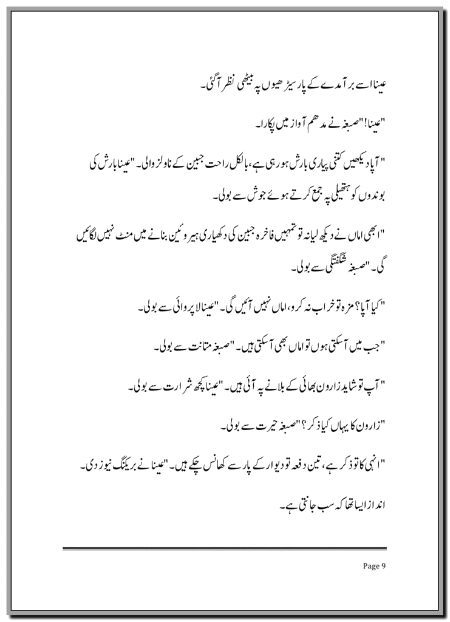 عینا اسے برآمدے کے پار سیڑھیوں پہ بیٹھی نظر آگئی۔
"عینا!" صبغہ نے مدھم آواز میں پکارا۔
"آپا دیکھیں کتنی پیاری بارش ہو رہی ہے، بالکل راحت جبین کے ناولز والی۔" عینا بارش کی
بوندوں کو ہتھیلی پہ جمع کرتے ہوئے جوش سے بولی۔
"ابھی اماں نے دیکھ لیا نہ تو تمہیں فاخرہ جبین کی دکھیاری ہیروئین بنانے میں منٹ نہیں لگائیں
گی۔" صبغہ شگفتگی سے بولی۔
"کیا آپا؟ مزہ تو خراب نہ کرو، اماں نہیں آئیں گی۔" عینا لاپروائی سے بولی۔
"جب میں آسکتی ہوں تو اماں بھی آسکتی ہیں۔" صبغہ متانت سے بولی۔
"آپ تو شاید زارون بھائی کے بلانے پہ آئی ہیں۔" عینا کچھ شرارت سے بولی۔
"زارون کا یہاں کیا ذکر؟" صبغہ حیرت سے بولی۔
"انہی کا تو ذکر ہے، تین دفعہ تو دیوار کے پار سے کھانس چکے ہیں۔" عینا نے بریکنگ نیوز دی۔
انداز ایسا تھا کہ سب جانتی ہے۔
Page 9